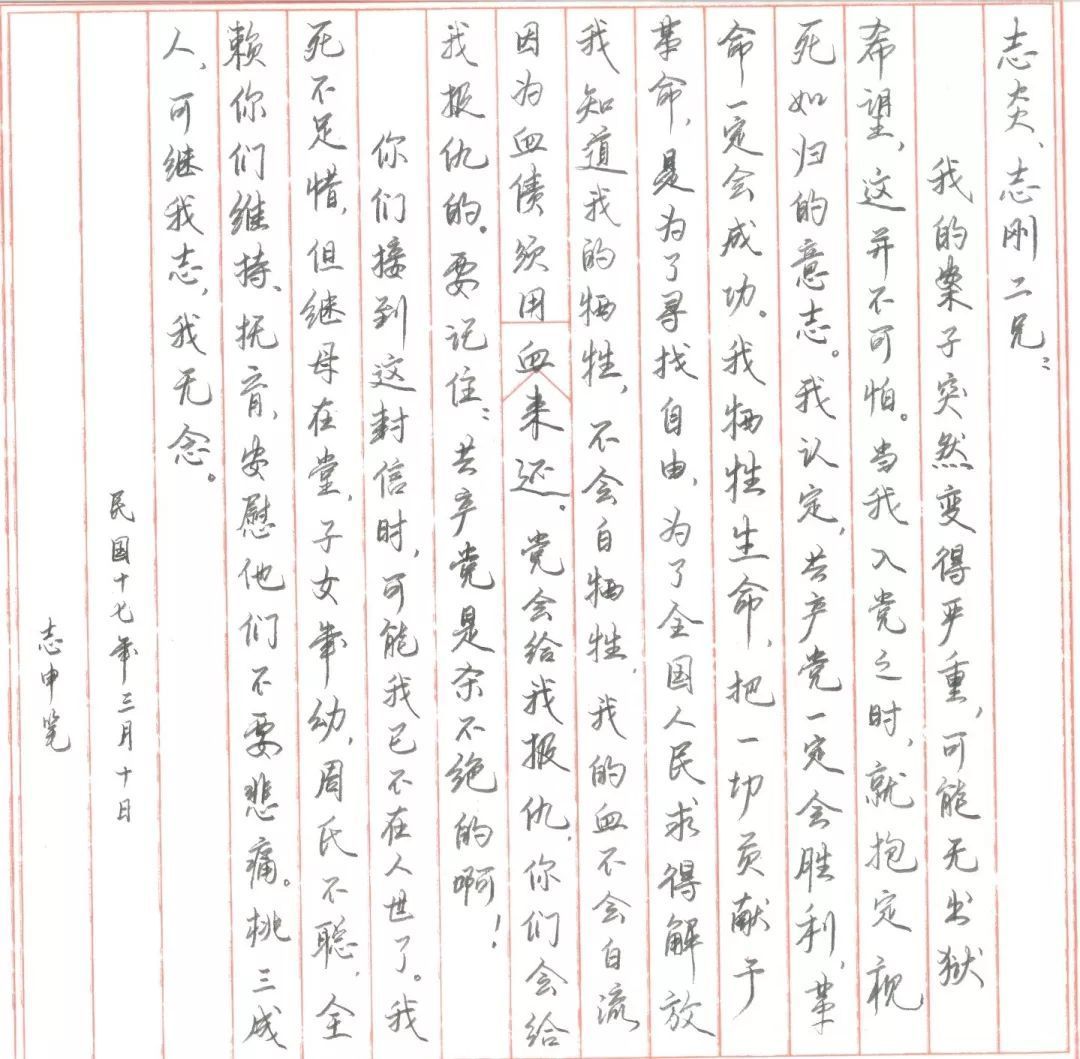 志炎、志刚二兄：
我的案子突然变得严重，可能无出狱
希望，这并不可怕。当我入党之时，就抱定视
死如归的意志。我认定，共产党一定会胜利，革
命一定会成功。我牺牲生命，把一切贡献于
革命，是为了寻找自由，为了全国人民求得解放
我知道我的牺牲，不会白牺牲，我的血不会白流
因为血债须用血来还。党会给我报仇，你们会给
我报仇的。要记住：共产党是杀不绝的啊！
你们接到这封信时，可能我已不在人世了。我
死不足惜，但继母在堂，子女年幼，周氏不聪，全
赖你们维持、抚育，安慰他们不要悲痛。桃三成
人，可继我志，我无念。
民国十七年三月十日
志申笔